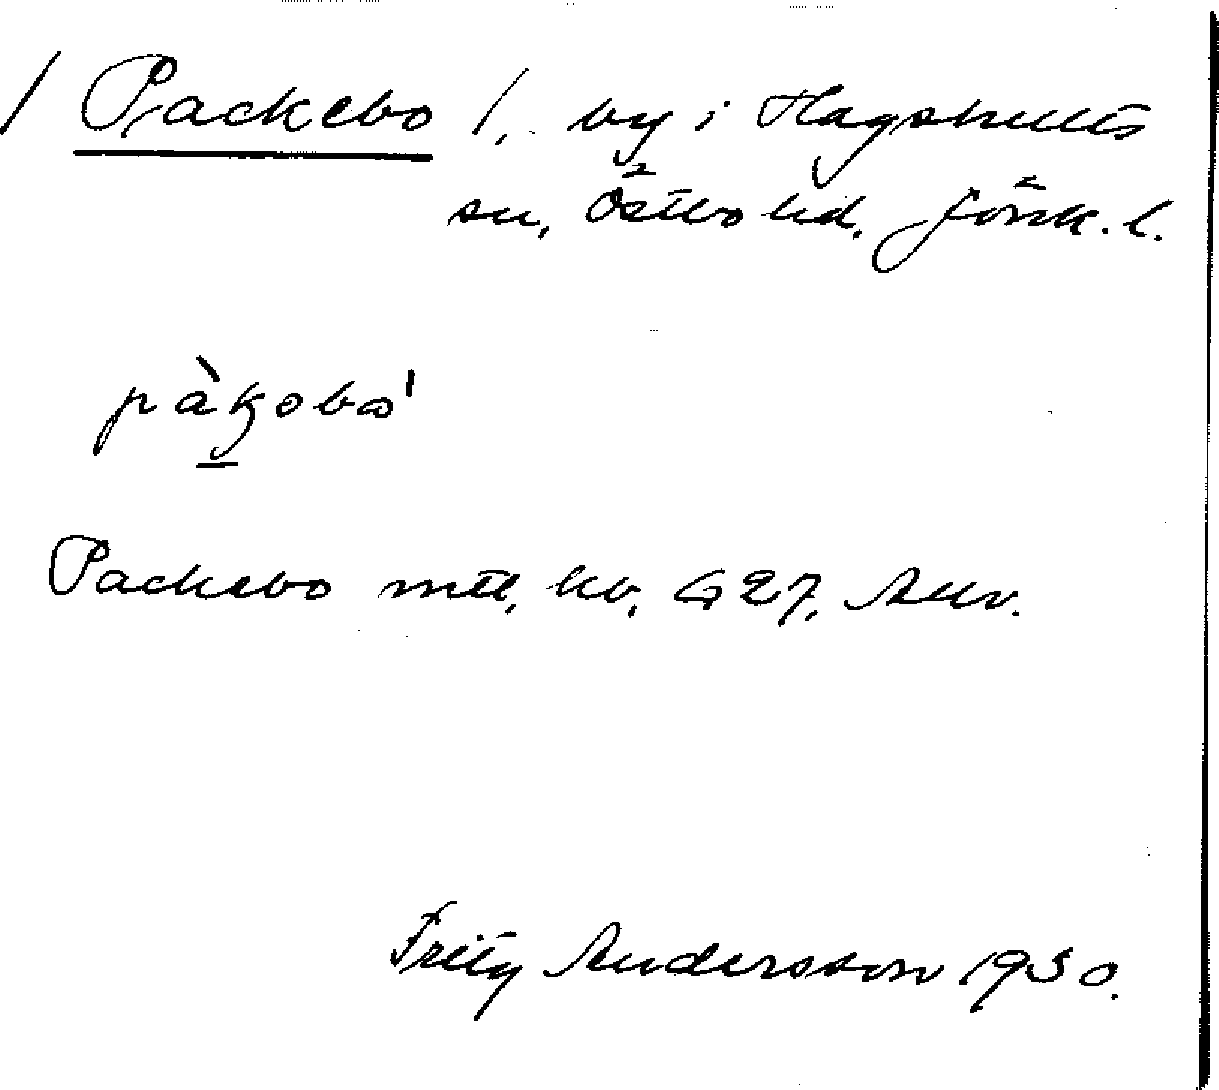 / Packebo /, by i Hagshults
sn, Östbo hd, Jönk. l.
pàkobo'
Packebo mtl, kv, G 27, AKv.
Fritz Andersson 1930.